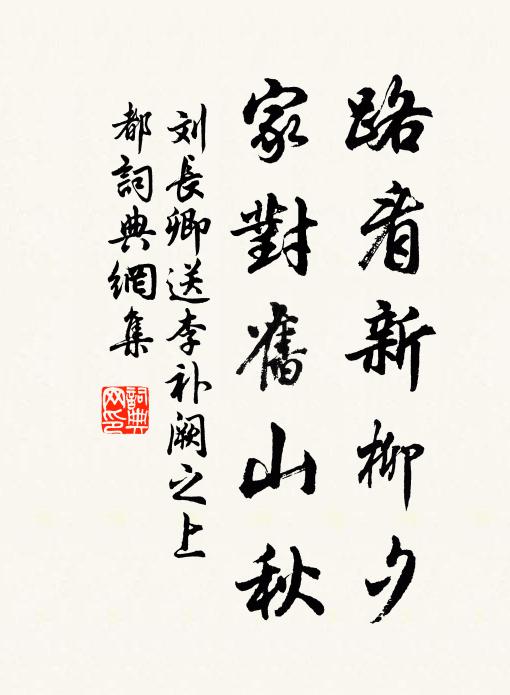 路看新柳夕
家對舊山秋
刘長卿送李补阙之上
都詞典網集
詞典
网印